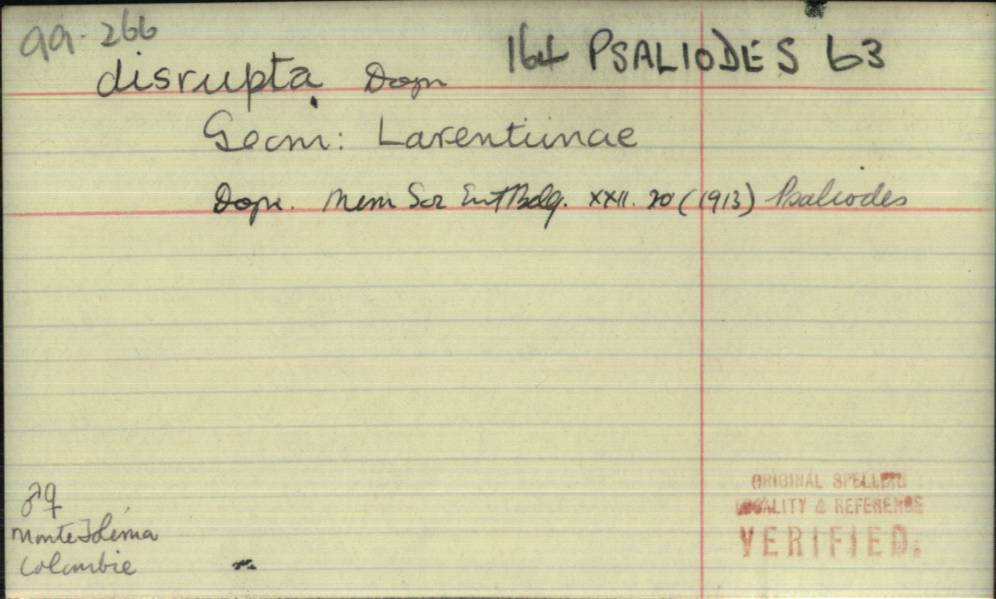 99.266
164 PSALIODES 63
disrupta Dogn
Geom: Larentiinae
Dogn. Mem Soc Ent Belg. XXII. 20 (1913) Psaliodes
♂♀
Monte Tolima
Colombie
ORIGINAL SPELLING
LOCALITY & REFERENCE
VERIFIED.